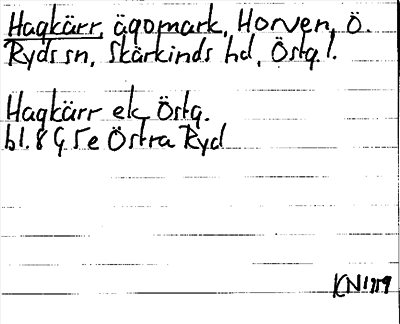 Hagkärr, ägomark, Horven, Ö.
Ryds sn, Skärkinds hd, Östg. l.
Hagkärr ek Östg.
bl. 8 G 5 e Östra Ryd